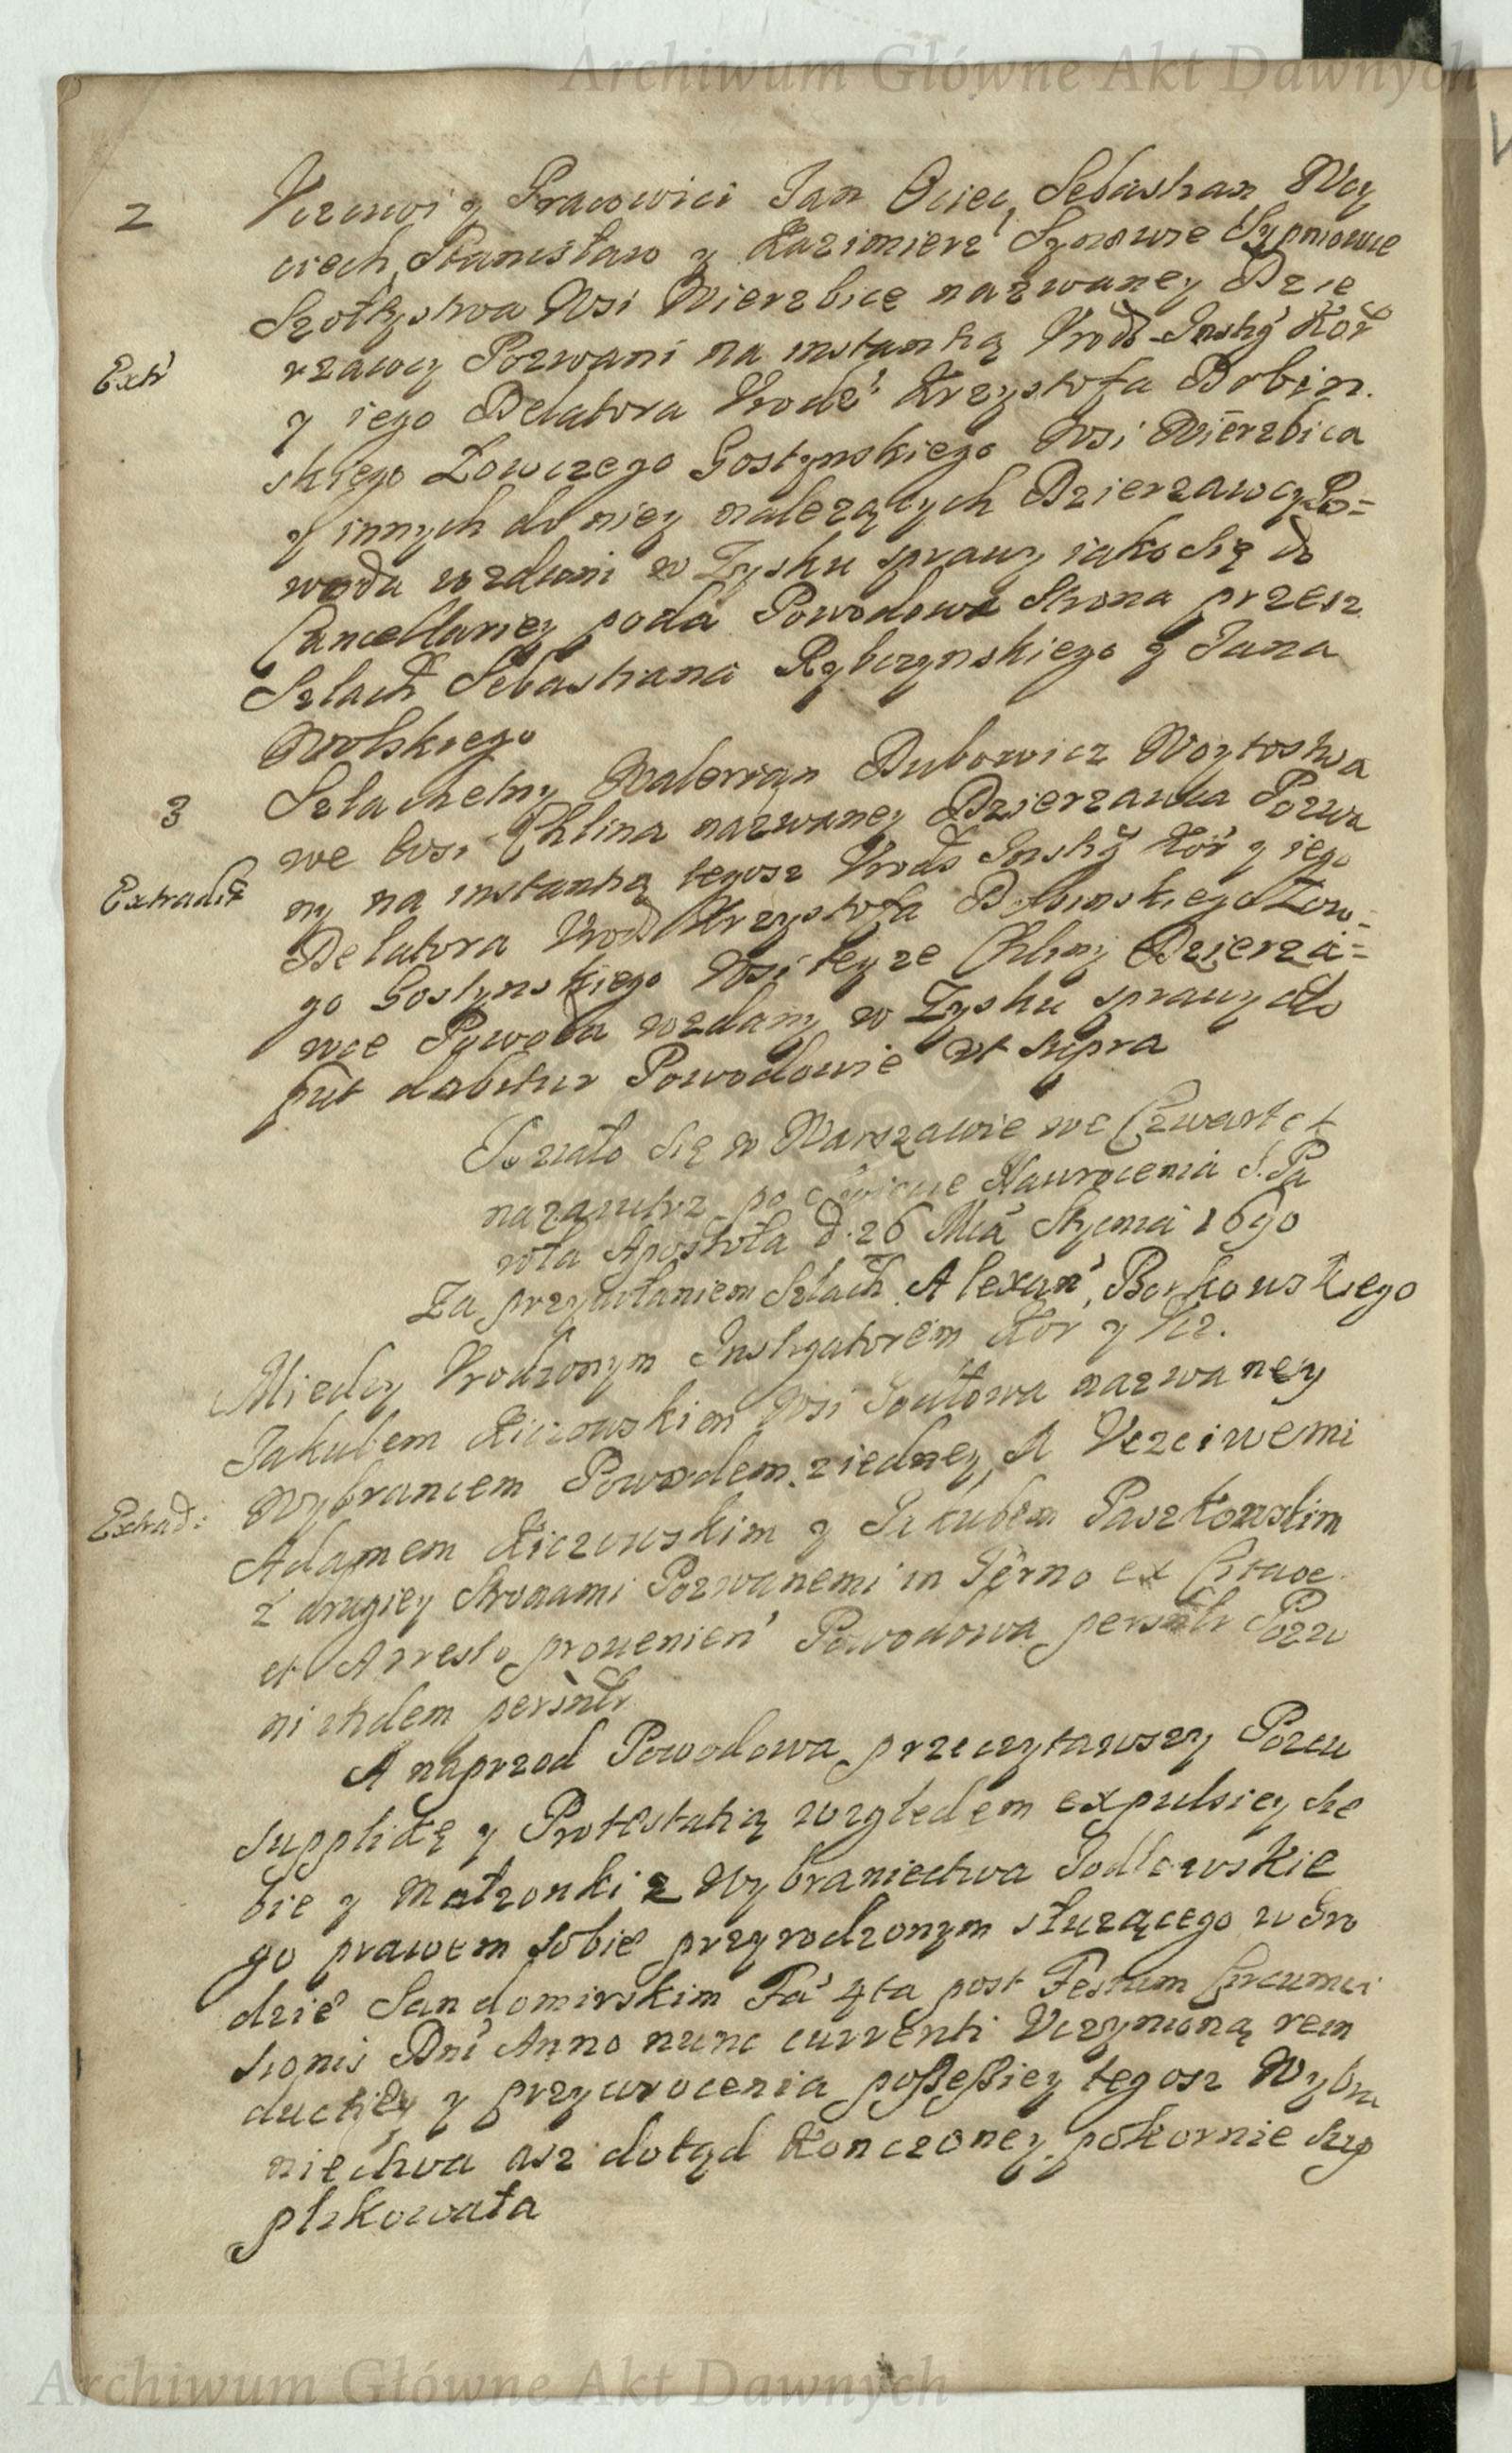 Archiwum Główne Akt Dawnych
2 Vczciwi y Pracowici Jan Ociec, Sebastian Woy
ciech, Stanisław y Kazimierz Synowie
Szołtystwa Wsi Wierzbicę nazwaney Dzie
Extr rzawcy Pozwani na instantią Vrodź Instig Kor
y iego Delatora Vrodź Krzysztofa Dobin
skiego Łowczego Gostynskiego Wsi Wierzbica
y innych do niey należących Dzierzawcy Po=
woda wzdani w Zysku sprawy iako się do
Cancellariey poda Powodowa Strona przesz
Szlach Sebastiana Rybczynskiego y Jana
Wolskiego
3 Szlachetny Walerian Dubowicz Woytostwa
we wsi Chlina nazwaney Dzierzawca Pozwa
Extradit ny na instantią tegosz Vrodz Instig Kor y iego
Delatora Vrodź Krzysztofa Dobinskiego Łow=
go Gostynskiego Wsi teyze Chliny Dzierza=
wce Powoda wzdany w Zysku sprawy do
put dabitur Powodowie vt supra
Działo się w Warszawie we Czwartek
nazaiutrz po Nawrocenia S. Pa
wła Apostoła d. 26 Mca Stycznia 1690
Za przywołaniem Szlach Alexan Borkowskiego
Miedzy Vrodzonym Instigatorem Kor y
Jakubem Kiczowskim Wsi nazwaney
Wybrancem Powodem z iedney, A Vczciwemi
Extrad: Adamem Kiczowskim y Jakubem Paszkowskim
z drugiey Stronami Pozwanemi in Termo ex Citaoe
et Arresto prouenien Powodowa personlr Pozw
ni itidem personlr
A naprzod Powodowa przeczytawszy Pozew
supplikę y Protestatią względem expulsiey sie
bie y Małzonki z Wybraniectwa Jodłowskie
go prawem sobie przyrodzonym służącego w Gro
dzie Sandomirskim Fa 4ta post Festum Circumci
sionis Dni Anno nunc currenti Vczynioną rein
ductiey y przywrocenia poßeßiey tegosz Wybra
niectwa asz dotąd konczoney pokornie sup
plikowała
Archiwum Główne Akt Dawnych